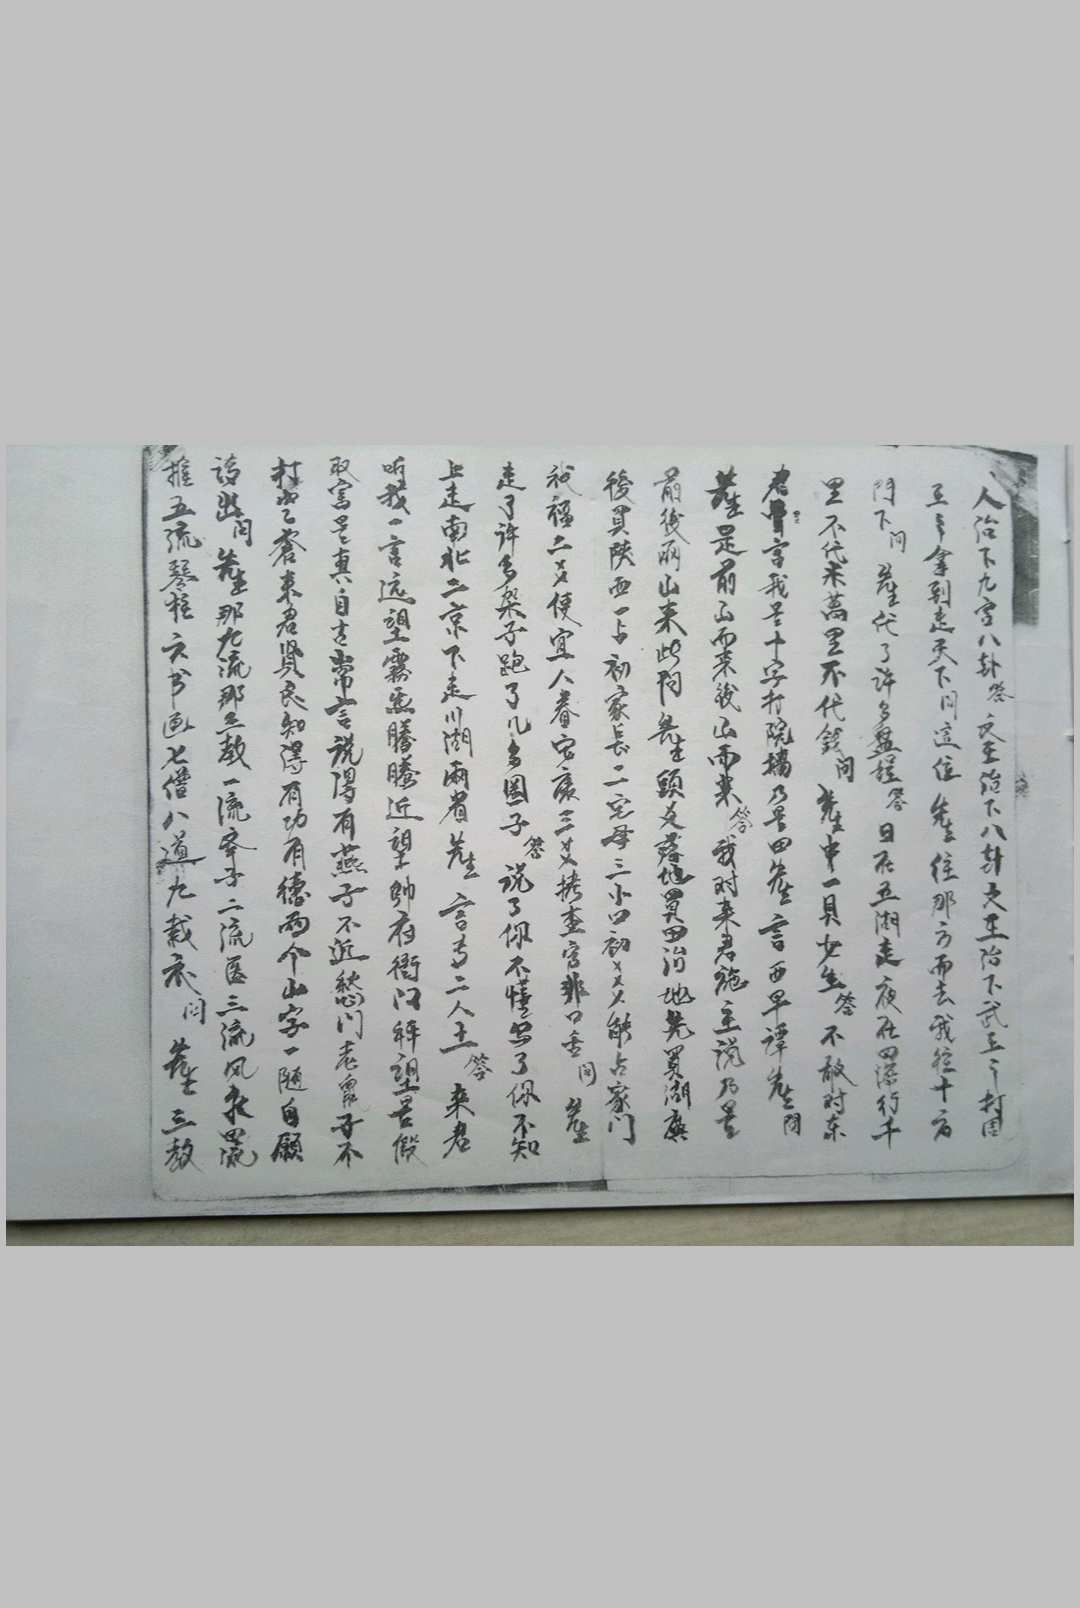 人治下九宫八卦答文王治下八卦文王治下武王之打围
王之拿到走天下问这位先生往那方而去我往十方
门下问先生代了许多盘程答日在五湖走夜在四深行千
里不代米万里不代钱问先生中一貝少生答不敢对东
君言我是十字打院墙乃是田先生言西早谭先生问
先生是前山而来後山而来答我对来君施主说乃是
前後两山来此问先生頭爻落地買田治地先買湖廣
後買陕西一占初家长二宅母三小口初爻能占家门
福二爻使宜人眷安康三爻拷查官非口舌问先生
走了许多架子跑了几多圈子答说了你不懂写了你不知
上走南北二京下走川湖兩省先生言寺二人土答来君
听我一言远望霧气腾腾近望帅府衙门祥望是假
取寓是真自古常言说得有燕子不近愁门老鼠子不
打空仓来君贤良知得有功有德两个山字一随自愿
請出问先生那九流那三教一流举子二流医三流风水四流
推五流琴柱六书画七僧八道九裁衣问先生三教